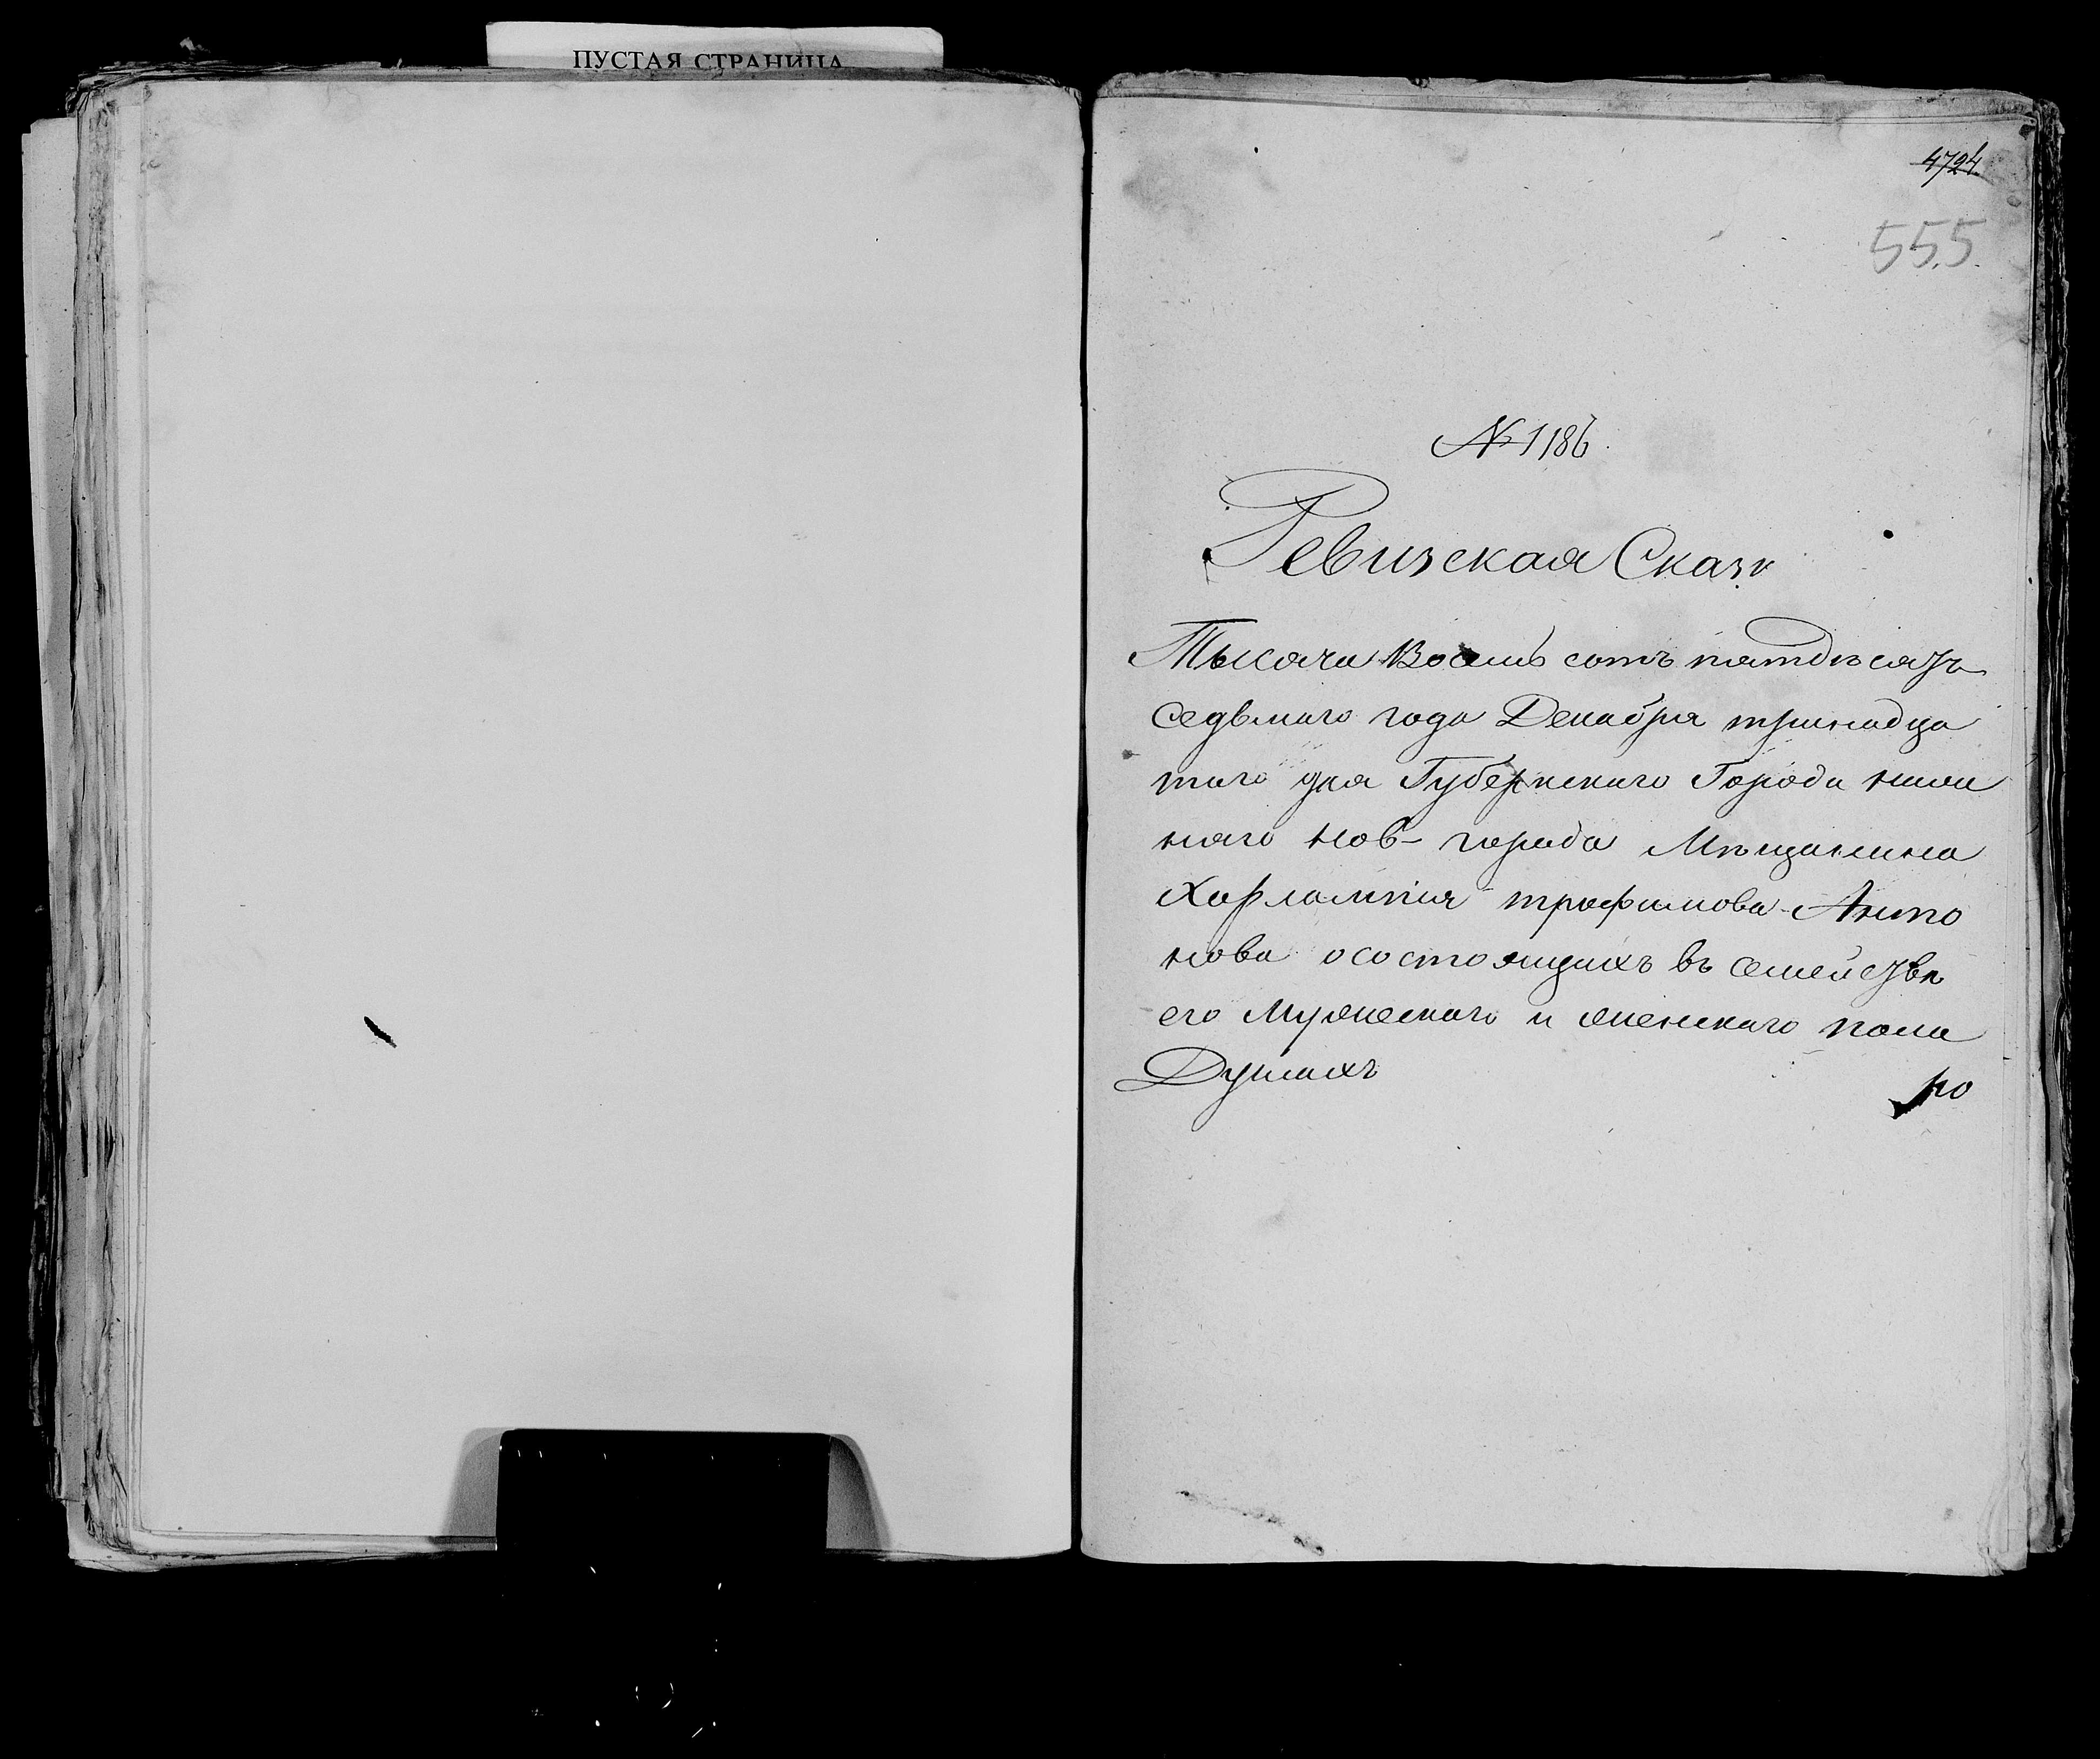 ПУСТАЯ СТРАНИЦА
4724
555.
№ 1186.
Ревизская Сказк
Тысяча Восемь сотъ пятдѣсятъ
седьмаго года Декабря тринадца
таго дня Губернскаго Города нижи
няго нов-города Мѣщанина
Харлампия трофимова Анто
нова осостоящихъ въ семействѣ
его Мужескаго и женскаго пола
Душахъ